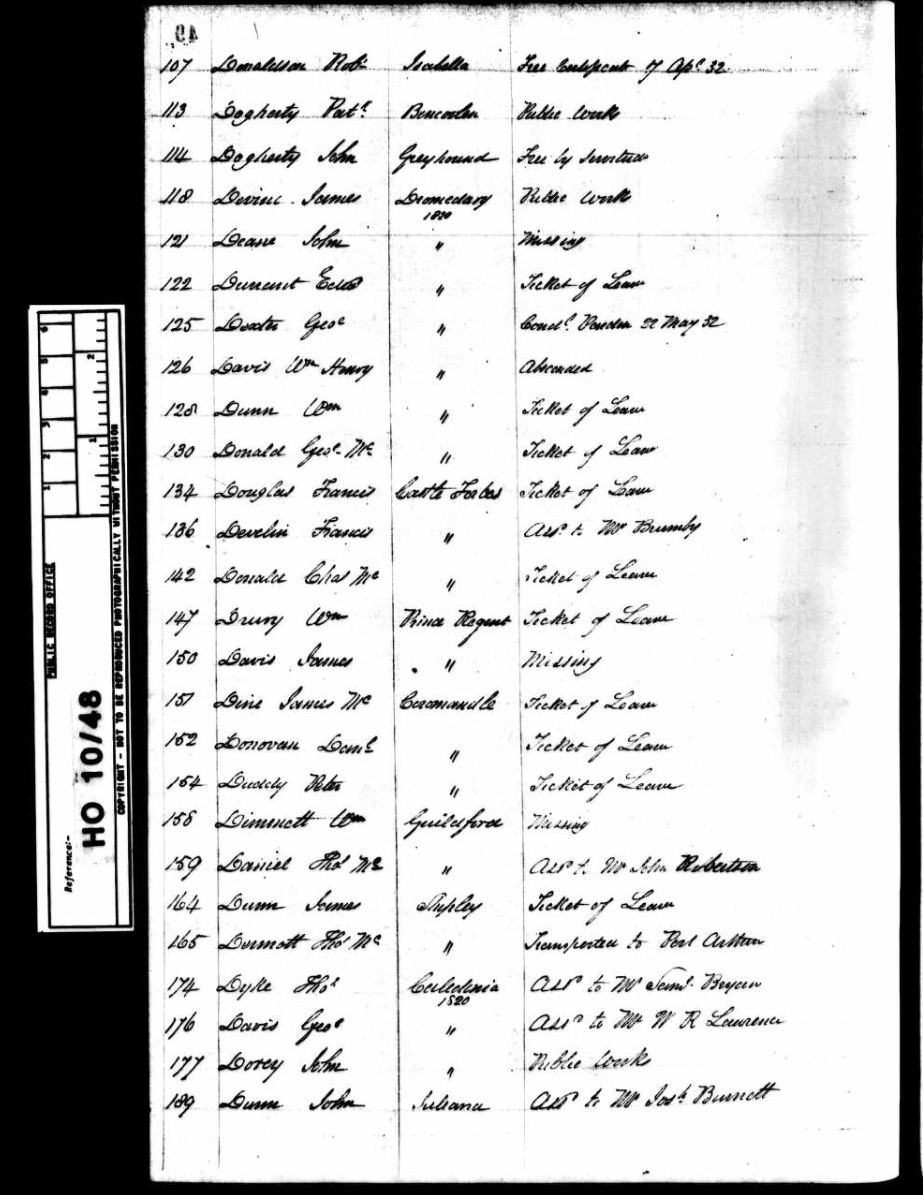 49
107 Donaldson Robt Isabella Free Certificate 7 Apl 32
113 Dogherty Patk Bencoolen Public Works
114 Dogherty John Greyhound Free by Servitude
118 Devine James Dromedary 1820 Public Works
121 Deane John " Missing
122 Durrant Edwd " Ticket of Leave
125 Dexter Geoe " Condl Pardon 22 May 32
126 Davis Wm Henry " Absconded
128 Dunn Wm " Ticket of Leave
130 Donald Geoe Mc " Ticket of Leave
134 Douglas Francis Castle Forbes Ticket of Leave
136 Develin Francis " Assd to Mr Brumby
142 Donald Chas Mc " Ticket of Leave
147 Drury Wm Prince Regent Ticket of Leave
150 Davis James " Missing
151 Dine James Mc Coromandle Ticket of Leave
152 Donovan Danl " Ticket of Leave
154 Duddy Peter " Ticket of Leave
158 Dimmett Wm Guildford Missing
159 Daniel Thos Mc " Assd to Mr John Robertson
164 Dunn James Shipley Ticket of Leave
165 Dermott Thos Mc " Transported to Port Arthur
174 Dyke Thos Caledonia 1820 Assd to Mr Saml Bryan
176 Davis Geoe " Assd to Mr W R Lawrence
177 Dorey John " Public Works
189 Dunn John Juliana Assd to Mr Josh Burnett
PUBLIC RECORD OFFICE
Reference:-
HO 10/48
COPYRIGHT - NOT TO BE REPRODUCED PHOTOGRAPHICALLY WITHOUT PERMISSION
1 2 3 4 5 6
1 2